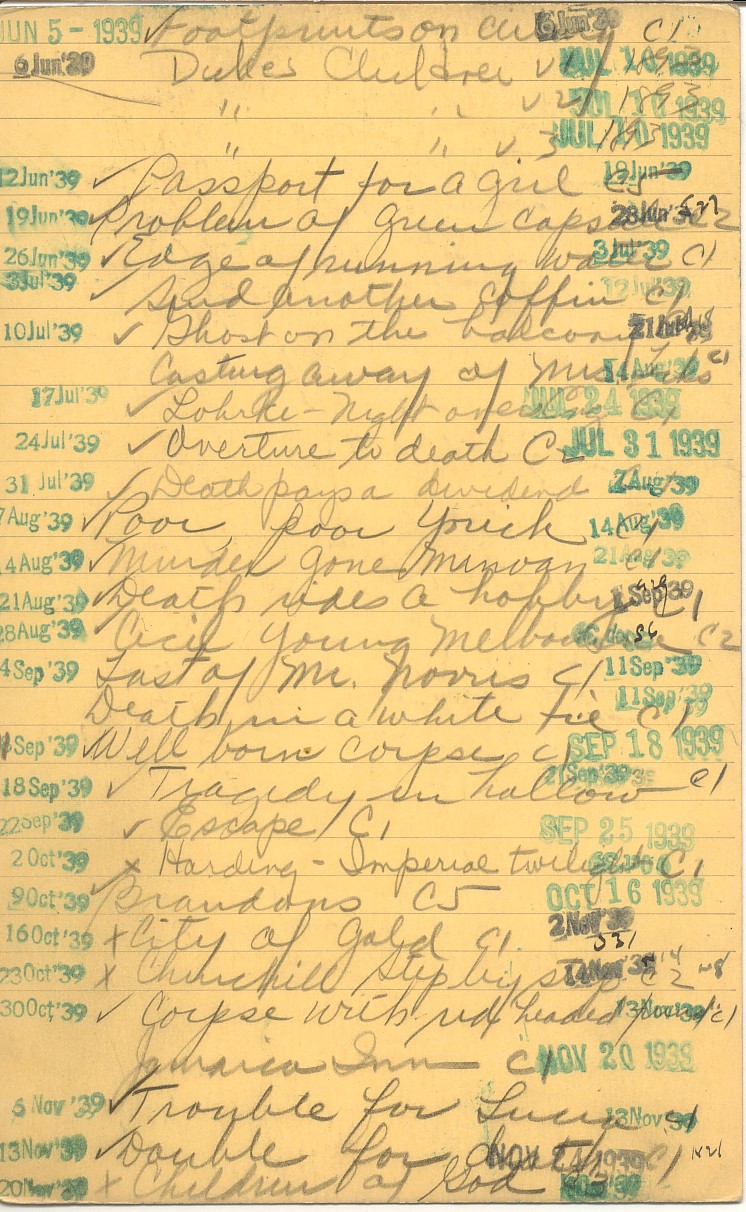 JUN 5 - 1939 ✓ Footprints on 6 Jun'39 C1
6 Jun'39 Dukes Children v1 JUL 10 1939 1893
" " v2 JUL 10 1939 1893
" " v3 JUL 10 1939 1893
12 Jun'39 ✓ Passport for a girl C5 19 Jun'39
19 Jun'39 ✓ Problem of Green capsule 28 Jun'39 C2
26 Jun'39 ✓ Edge of running water 3 Jul'39 C1
3 Jul'39 ✓ Send another coffin C1 12 Jul'39
10 Jul'39 ✓ Ghost on the balcony 21 Jul'39
Casting away of Mrs Lecks 14 Aug'39 C1
17 Jul'39 ✓ Lohrke - Night over JUL 24 1939
24 Jul'39 ✓ Overture to death C2 JUL 31 1939
31 Jul'39 ✓ Death pays a dividend 7 Aug'39
7 Aug'39 ✓ Poor, poor Yorick C1 14 Aug'39
14 Aug'39 ✓ Murder gone Minoan C1 21 Aug'39
21 Aug'39 ✓ Death rides a hobby Sep'39 C1
28 Aug'39 Cecil Young Melbourne 56 C2
4 Sep'39 Last of Mr. Norris C1 11 Sep'39
Death in a white tie C1 11 Sep'39
Sep'39 ✓ Well born corpse C1 SEP 18 1939
18 Sep'39 ✓ Tragedy in hollow 21 Sep'39 C1
22 Sep'39 ✓ Escape C1 SEP 25 1939
2 Oct'39 x Harding - Imperial twilight C1
9 Oct'39 ✓ Brandons C5 OCT 16 1939
16 Oct'39 x City of Gold C1 2 Nov'39 531
23 Oct'39 x Churchill Step by step 14 Nov'39 C2
30 Oct'39 ✓ Corpse with red headed 13 Nov'39 C1
Jamaica Inn C1 NOV 20 1939
6 Nov'39 ✓ Trouble for Lucia 13 Nov'39 C1
13 Nov'39 ✓ Double for death NOV 24 1939 C1 N21
20 Nov'39 x Children of God